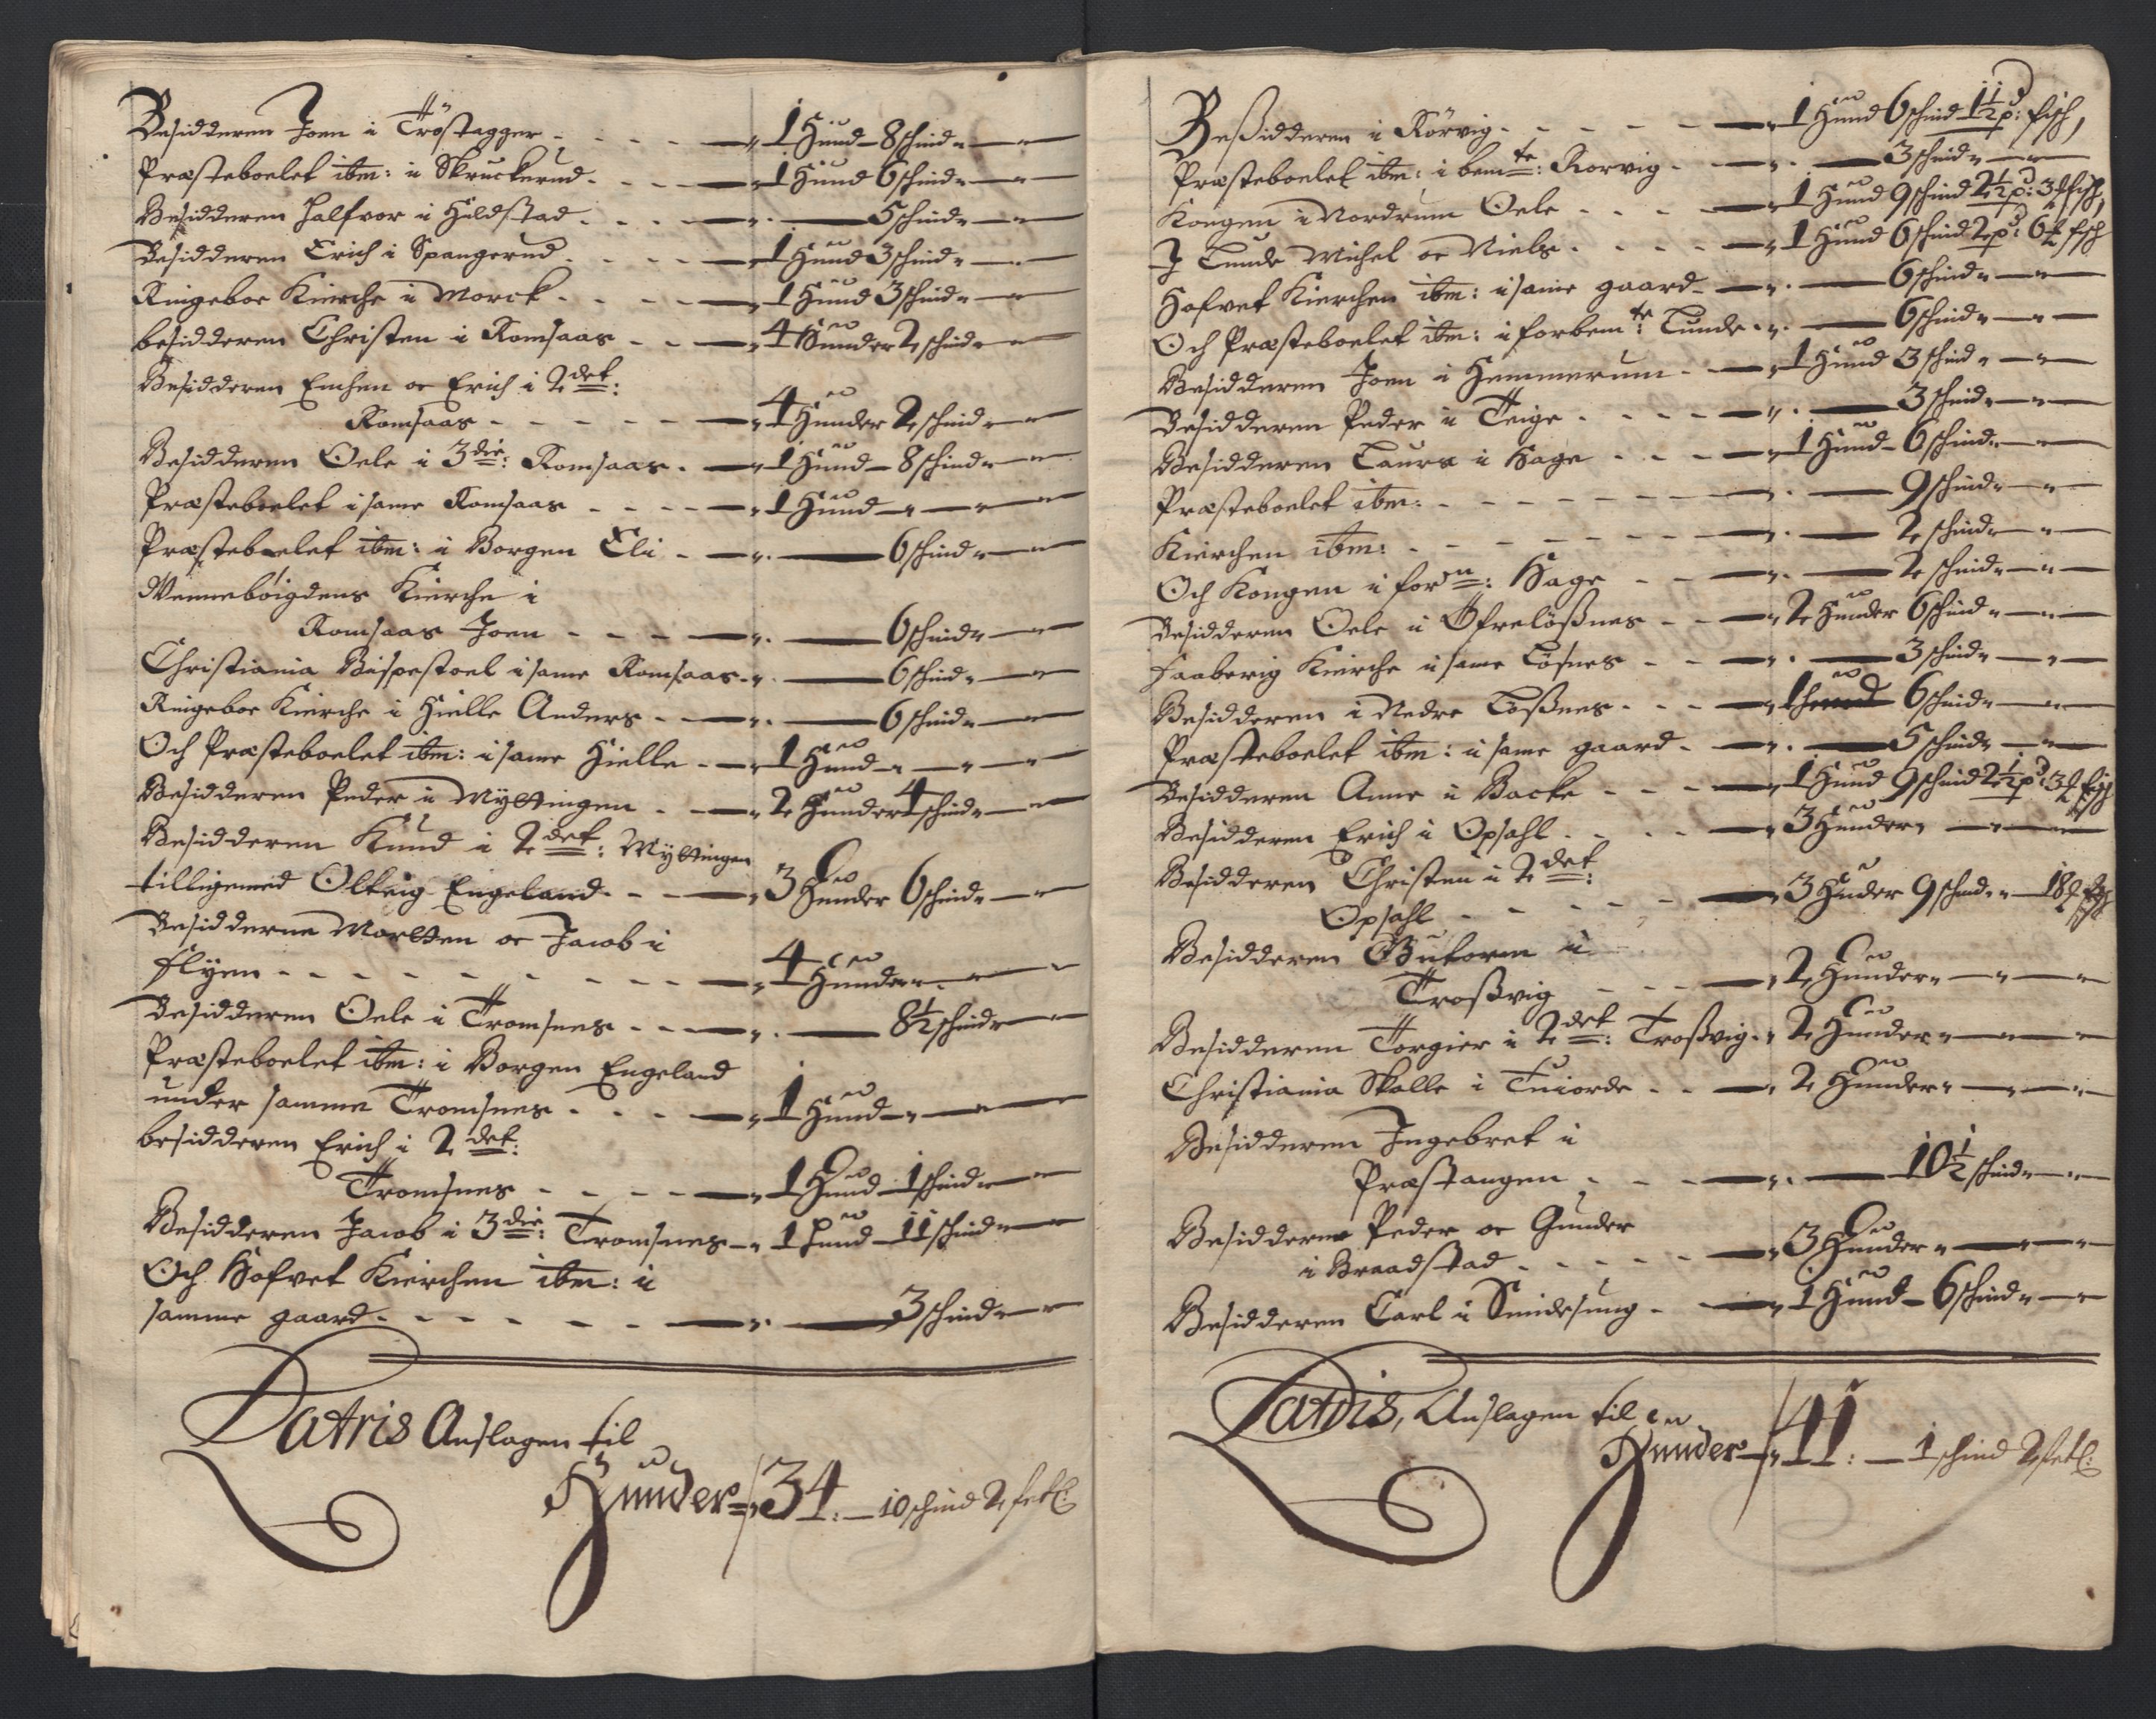 Besidderen Joen i Tröstagger - - - - 1 Hund - 8 schind
Præsteboelet ibm: i Skruckerud - - - 1 Hund 6 schind
Besidderen Halfvor i Hildstad - - - 5 schind
Besidderen Erich i Spangerud - - - 1 Hund 3 schind
Ringeboe Kierche i Morck - - - 1 Hund 3 schind
besidderen Christen i Romsaas - - 4 Hunder 2 schind
Besidderen Emhen oc Erich i 2det:
Romsaas - - - - - 4 Hunder 2 schind
Besidderen Oele i 3die: Romsaas - 1 Hund - 8 schind
Præsteboelet i same Romsaas - - - 1 Hund
Præsteboelet ibm: i Borgen Eli - 6 schind
Wenneböigdens Kierche i
Romsaas Joen - - - 6 schind
Christiania Bispestoel i same Romsaas - 6 schind
Ringeboe Kierche i Hielle Anders - 6 schind
Och Præsteboelet ibm: i same Hielle - 1 Hund
Besidderen Peder i Myttingen - - 2 Hunder 4 schind
Besidderen Knud i 2det: Myttingen
tilligemed Olteig Engeland - - 3 Hunder 6 schind
Besidderne Morten oc Jacob i
Flyen - - - - - - - 4 Hunder
Besidderen Oele i Tromsnes - - - 8½ schind
Præsteboelet ibm: i Borgen Engeland
under samme Tromsnes - - - 1 Hund
besidderen Erich i 2det:
Tromsnes - - - - 1 Hund - 1 schind
Besidderen Jacob i 3die: Tromsnes - 1 Hund - 11 schind
Och Hofvet Kierchen ibm: i
samme gaard - - - - - - 3 schind
Latris Anslagen til
Hunder 34: - 10 schind 2 fetl:
Beßidderen i Rörvig - - - - - 1 Hund 6 schind 1½ pd: fisch,
Præsteboelet ibm: i bemte: Rorvig - - 3 schind
Kongen i Nordrum Oele - - - - 1 Hund 9 schind 2½ pd: 3 fisch,
I Lunde Michel oc Niels - - - - 1 Hund 6 schind 2 pd: 6 fisch
Hofvet Kierchen ibm: i same gaard - 6 schind
Och Præsteboelet ibm: i forbemte: Lunde - 6 schind
Besidderen Joen i Hemmerum - - 1 Hund 3 schind
Besidderen Peder i Teige - - - - 3 schind
Besidderen Laurs i Hage - - - 1 Hund - 6 schind
Præsteboelet ibm: - - - - - - 9 schind
Kierchen ibm: - - - - - - 2 schind
Och Kongen i forn: Hage - - 2 schind
Besidderen Oele i Öfrelößnes - - 2 Hunder 6 schind
Faaberig Kierche i same Lösnes - - 3 schind
Besidderen i Nedre Lößnes - - - 1 Hund 6 schind
Præsteboelet ibm: i same gaard - 5 schind
Besidderen Anne i Backe - - - 1 Hund 9 schind 2½ pd: 3 fisch
Besidderen Erich i Opsahl - - - 3 Hunder
Besidderen Christen i 2det:
Opsahl - - - - - 3 Huder 9 schind - 18 fisch
Besidderen Gutorm i
Troßvig - - - 2 Hunder
Besidderen Torgier i 2det: Troßvig - 2 Hunder
Christiania Skolle i Tuiorde - - 2 Hunder
Besidderen Ingebret i
Præstangen - - - 10½ schind
Besidderne Peder oc Gunder
i Braadstad - - - - - 3 Hunder
Besidderen Carl i Smidesung - 1 Hund - 6 schind
Latris, Anslagen til
Hunder 41: - 1 schind 2 fetl: